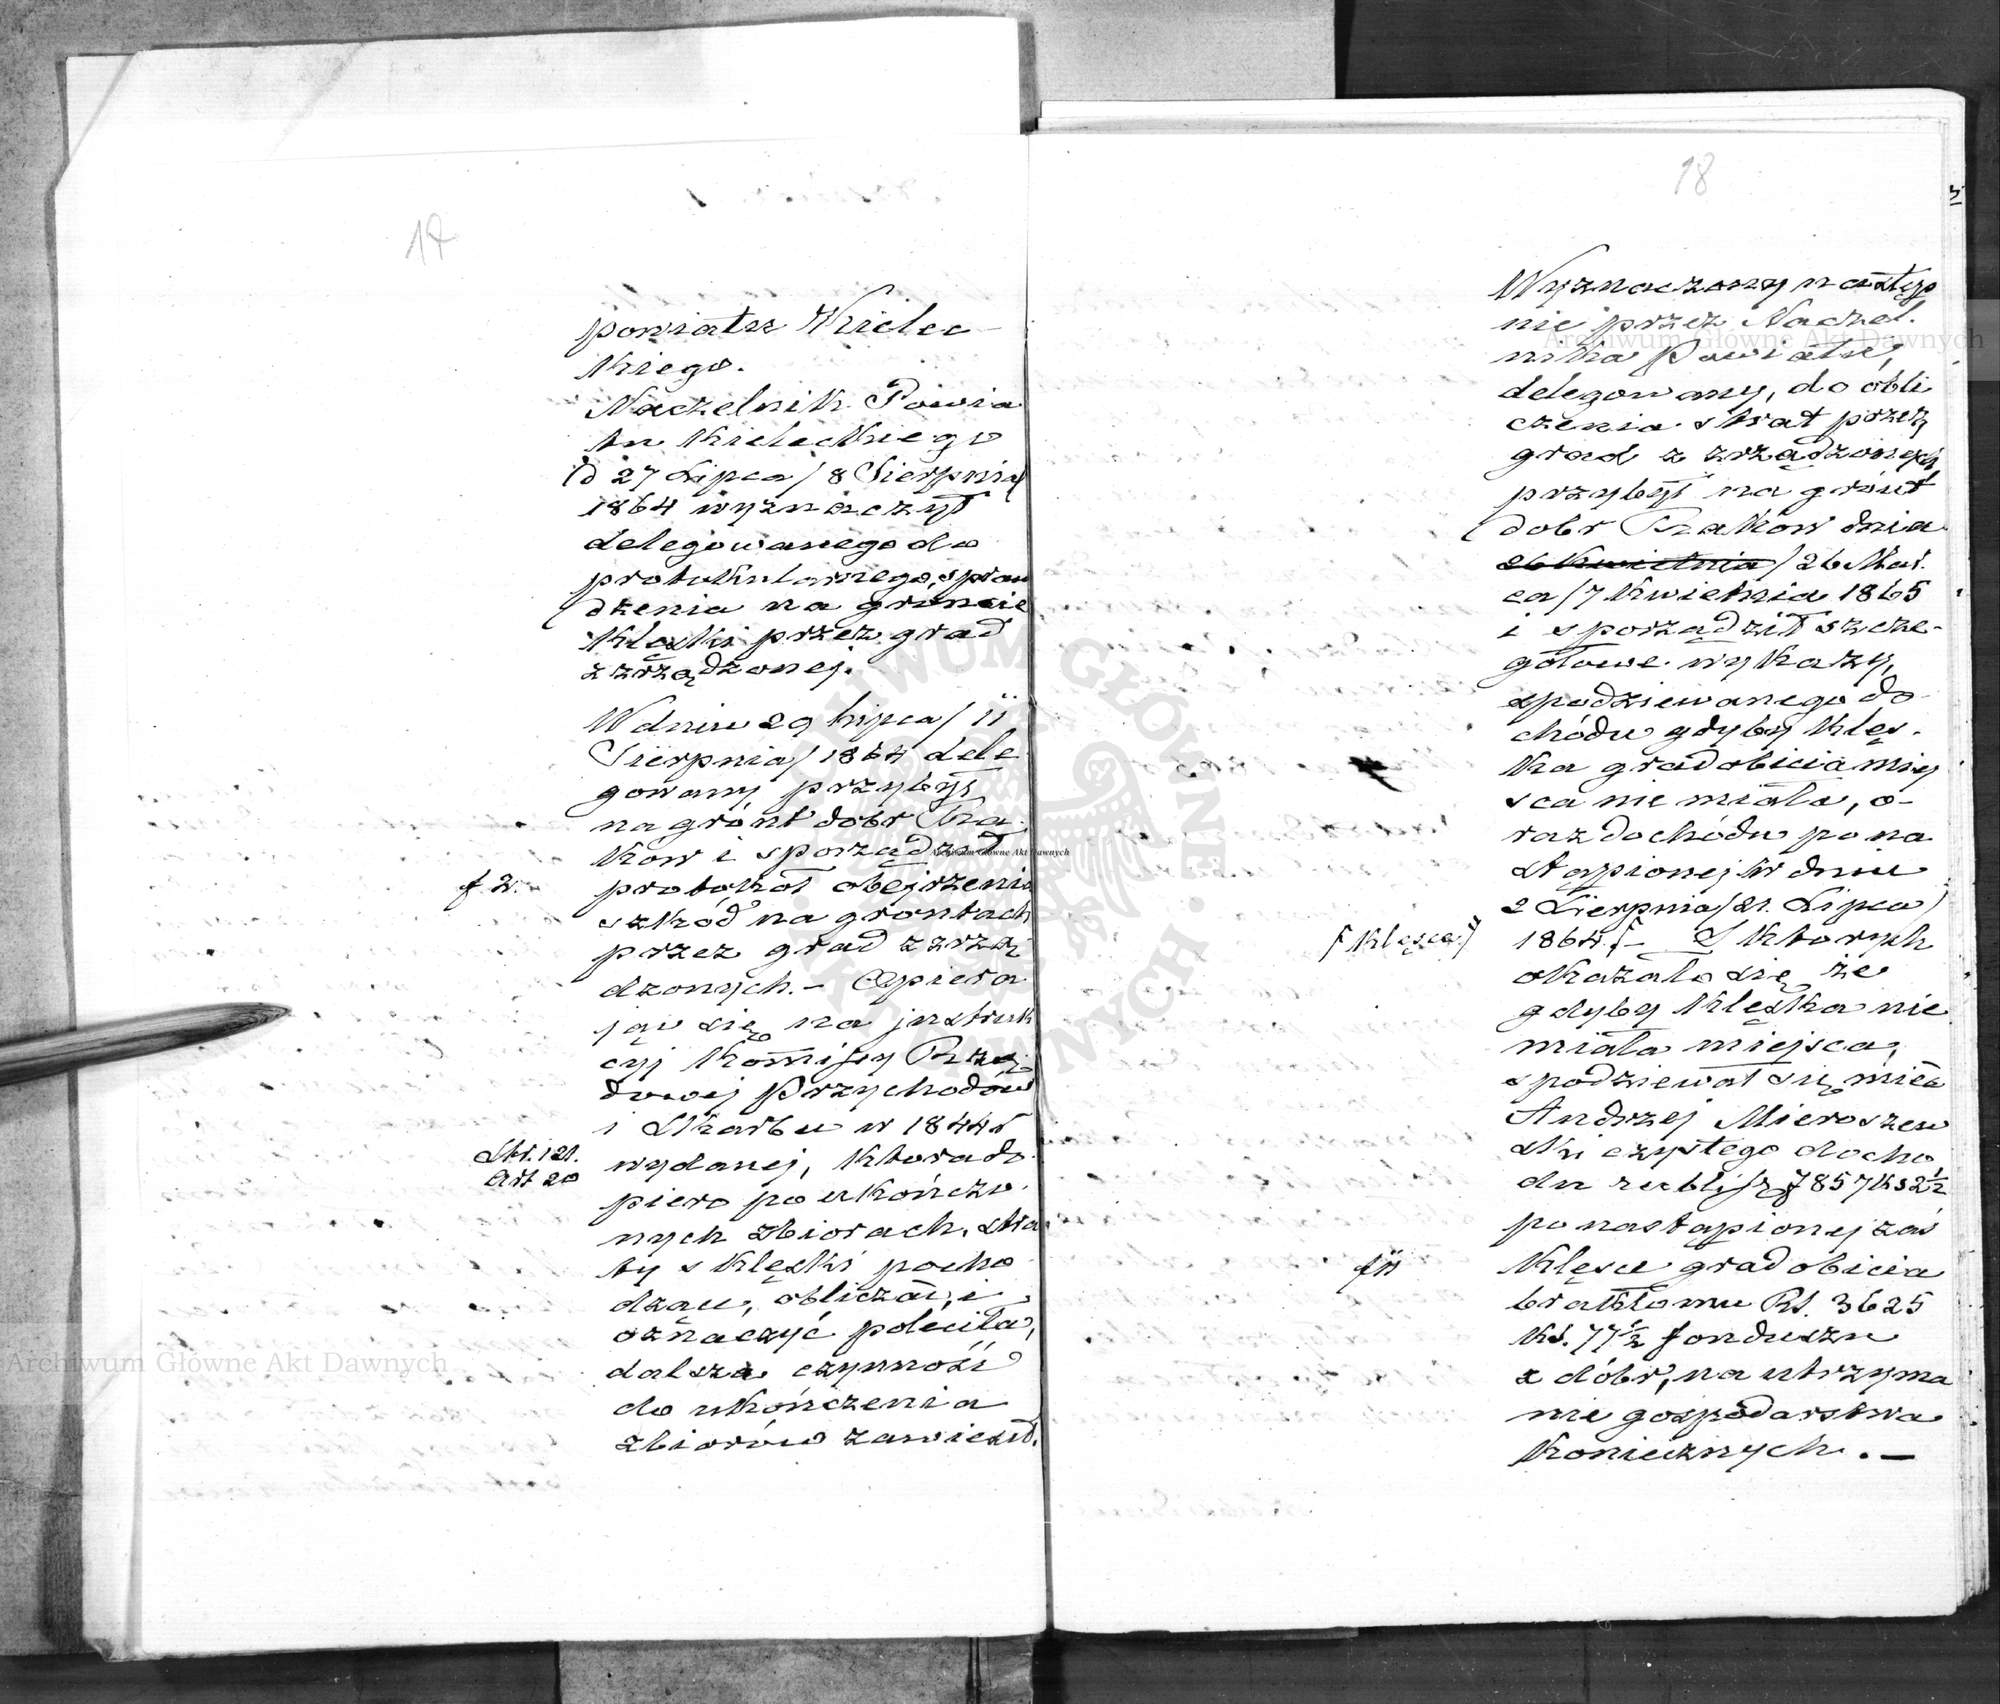 17
powiatu Kielec-
kiego.
Naczelnik Powia
tu Kieleckiego
d 27 Lipca / 8 Sierpnia
1864 wyznaczył
delegowanego do
protokularnego spraw
dzenia na gruncie
klęski przez grad
zrządzonej.
W dniu 29 Lipca / 11
Sierpnia / 1864 dele
gowany przybył
na grónt dobr
ków i sporządził
f 2. protokół obejrzenia
szkód na grontach
przez grad zrzą
dzonych. - Opiera
jąc się na jnstruk
cyj Kommissy Rzą
dowej Przychodów
i Skarbu w 1844 r
Str. 121. wydanej, która do
Art 20
piero po ukończo
nych zbiorach, stra
ty s klęski pocho
dzące, obliczać, i
oznaczyć poleciła,
dalszą czynność
do ukończenia
zbiorów zawiesił.
18
Wyznaczony następ
nie przez Naczel.
nika Powiatu,
delegowany, do obli
czenia strat przez
grad zrządzonych,
przybył na grónt
dobr dnia
26 Kwietnia / 26 Mar.
ca / 7 Kwietnia 1865
i sporządził szcze-
gółowe wykazy,
spodziewanego do
chódu gdyby klęs.
ka gradobicia miey
sca nie miała, o-
raz dochódu po na
stąpionej w dniu
2 Sierpnia / 21. Lipca /
[klęsce] 1864. - Z ktorych
okazało się że
gdyby klęska nie
miała miejsca,
spodziewał się mieć
Andrzej Mieroszew
ski czystego docho
du rubli sr 7857 k 52½
po nastąpionej zaś
klęsce gradobicia
brakło mu Rs. 3625
ks. 77½ fonduszu
z dóbr, na utrzyma
nie gospodarstwa
koniecznych. -
Archiwum Główne Akt Dawnych
Archiwum Główne Akt Dawnych
Archiwum Główne Akt Dawnych
ARCHIWUM GŁÓWNE AKT DAWNYCH